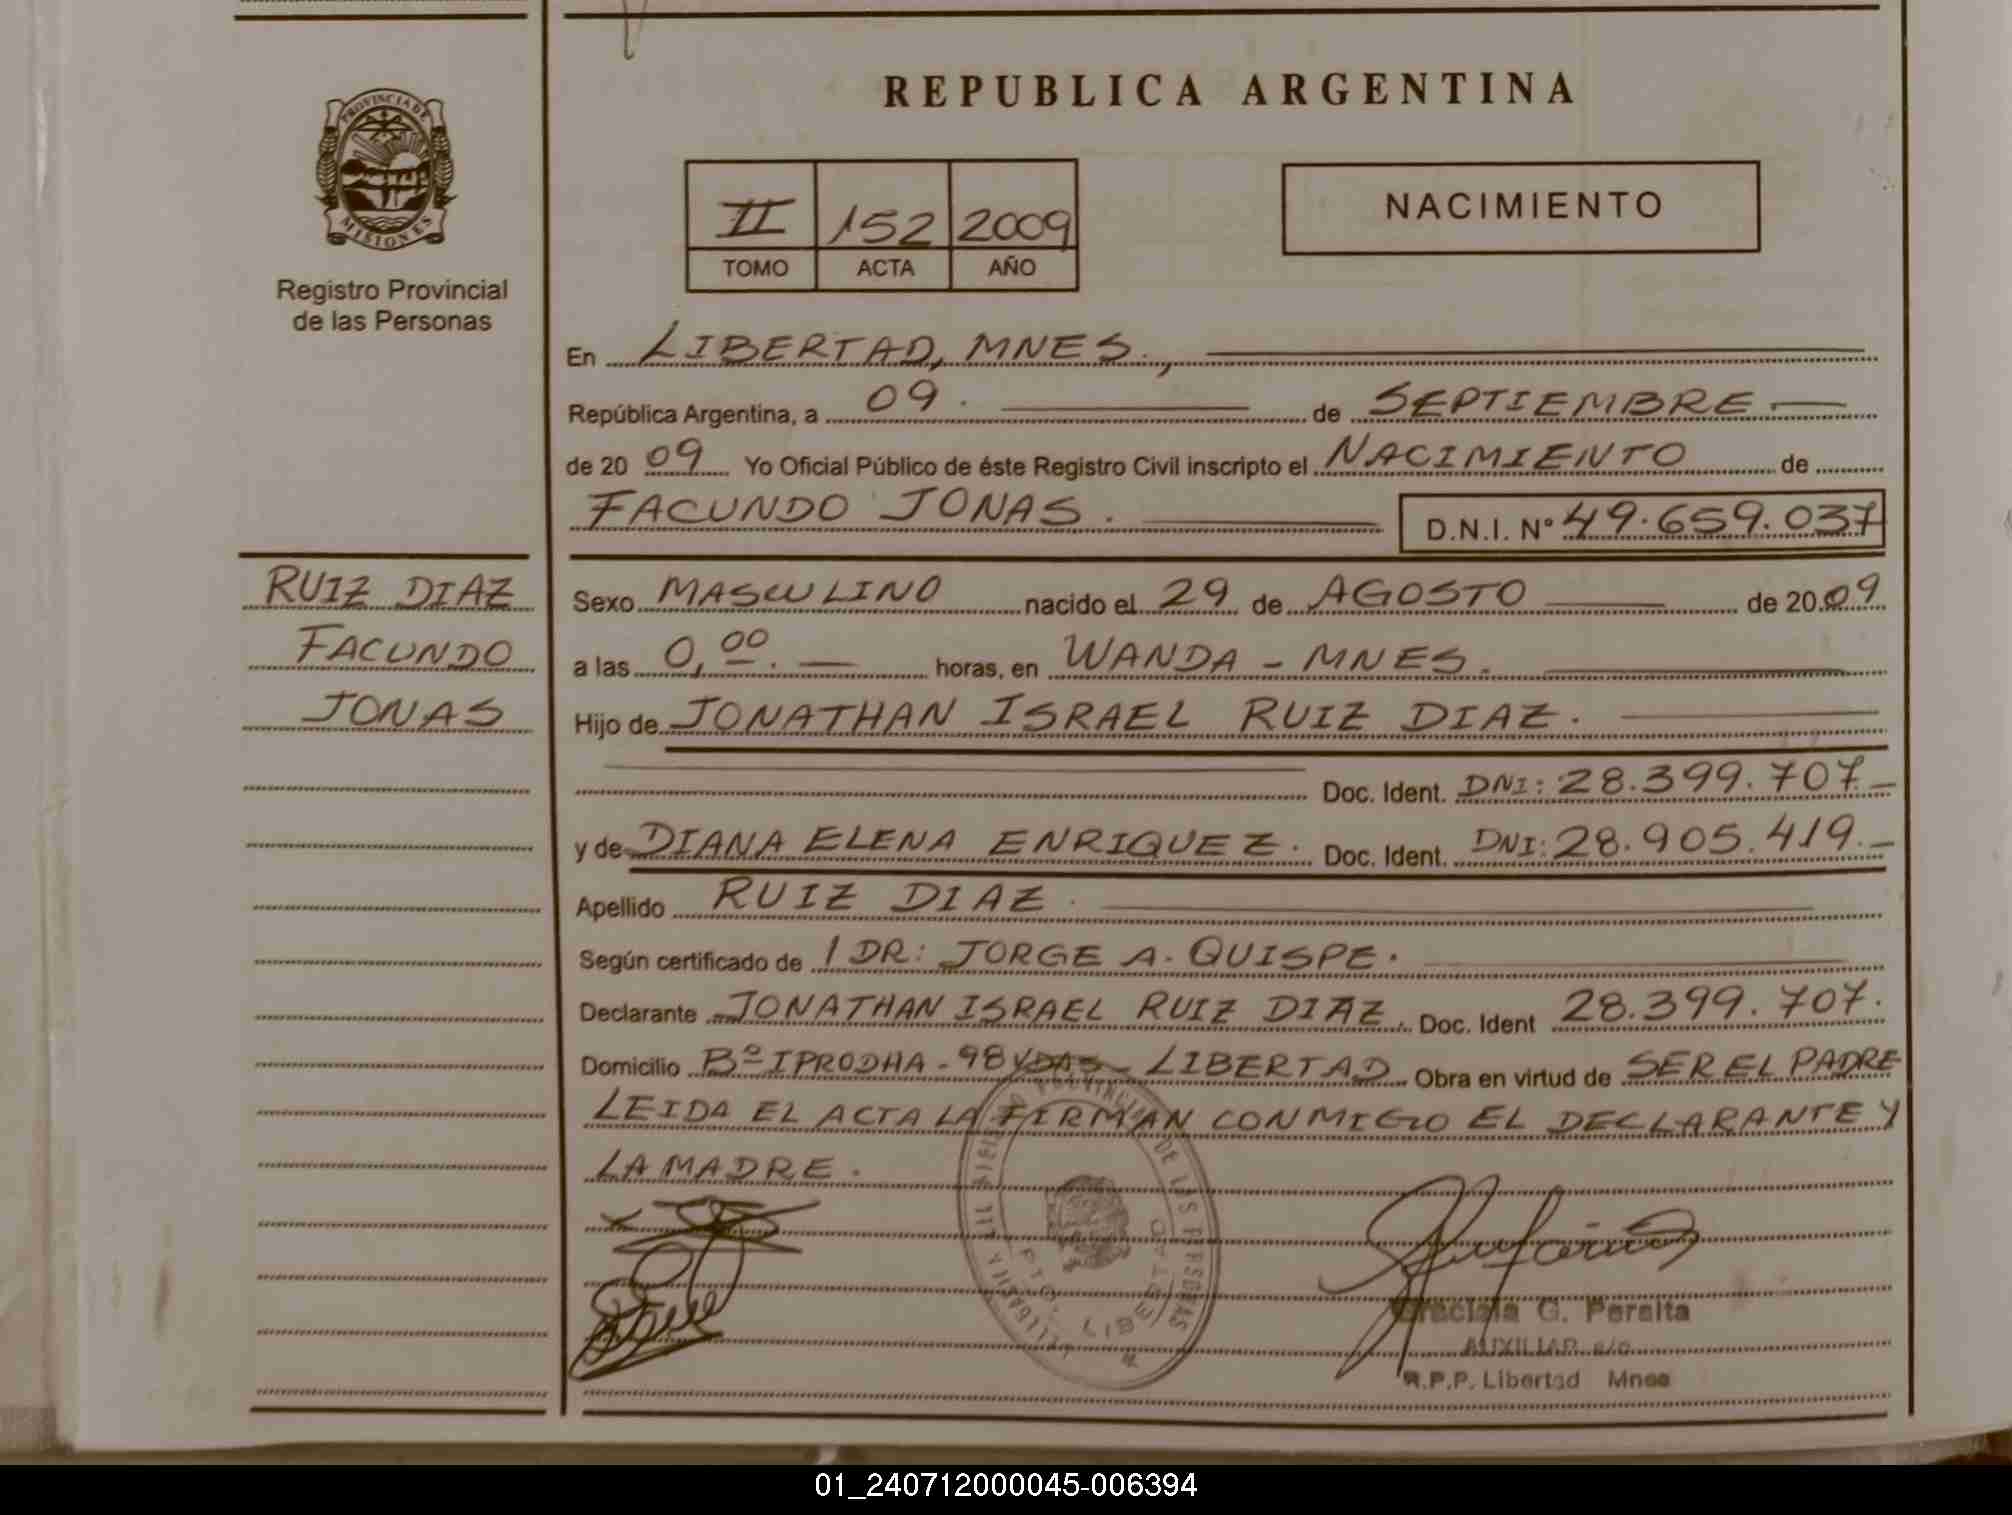 REPUBLICA ARGENTINA
PROVINCIA DE
MISIONES
Registro Provincial
de las Personas
II 152 2009
TOMO ACTA AÑO
NACIMIENTO
En LIBERTAD, MNES.,
República Argentina, a 09. de SEPTIEMBRE
de 20 09 Yo Oficial Público de éste Registro Civil inscripto el NACIMIENTO de
FACUNDO JONAS. D.N.I. Nº 49.659.037
RUIZ DIAZ
FACUNDO
JONAS
Sexo MASCULINO nacido el 29 de AGOSTO de 20.09
a las 0,00. horas, en WANDA - MNES.
Hijo de JONATHAN ISRAEL RUIZ DIAZ.
Doc. Ident. DNI: 28.399.707.-
y de DIANA ELENA ENRIQUEZ. Doc. Ident. DNI: 28.905.419.-
Apellido RUIZ DIAZ.
Según certificado de 1 DR: JORGE A. QUISPE.
Declarante JONATHAN ISRAEL RUIZ DIAZ. Doc. Ident 28.399.707.
Domicilio Bº IPRODHA - 98 VDAS - LIBERTAD Obra en virtud de SER EL PADRE
LEIDA EL ACTA LA FIRMAN CONMIGO EL DECLARANTE Y
LA MADRE.
DE LAS PERSONAS
PTO. LIBERTAD
Graciela G. Peralta
AUXILIAR a/c
R.P.P. Libertad Mnes
01_240712000045-006394